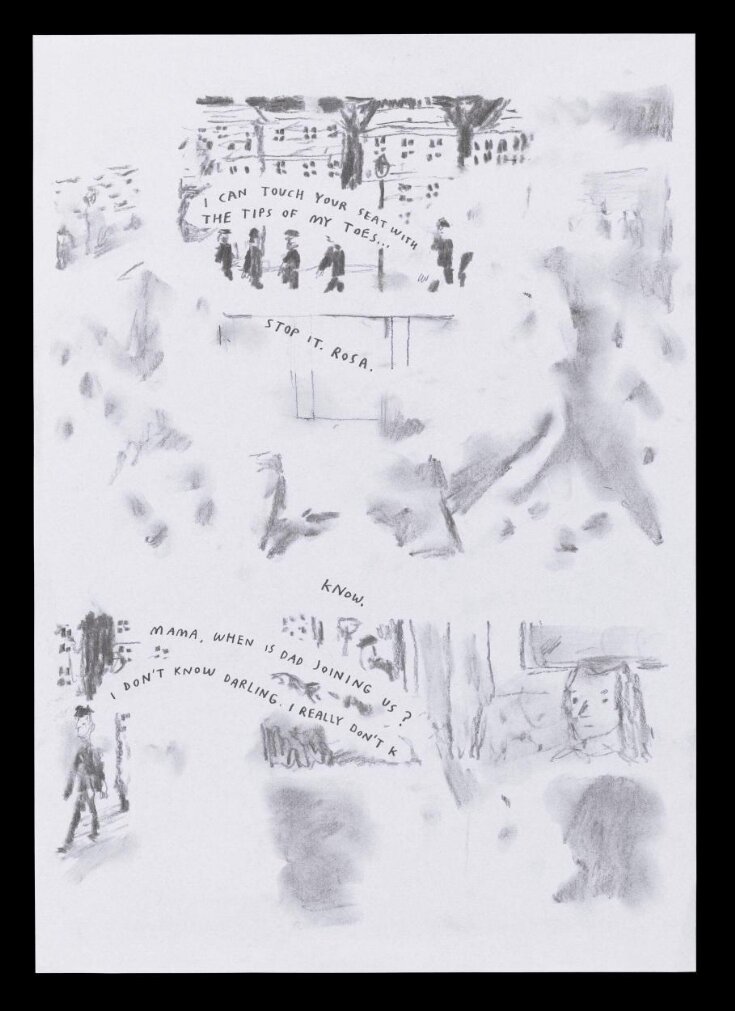 I CAN TOUCH YOUR SEAT WITH
THE TIPS OF MY TOES...
STOP IT. ROSA.
KNOW.
MAMA, WHEN IS DAD JOINING US?
I DON'T KNOW DARLING. I REALLY DON'T K